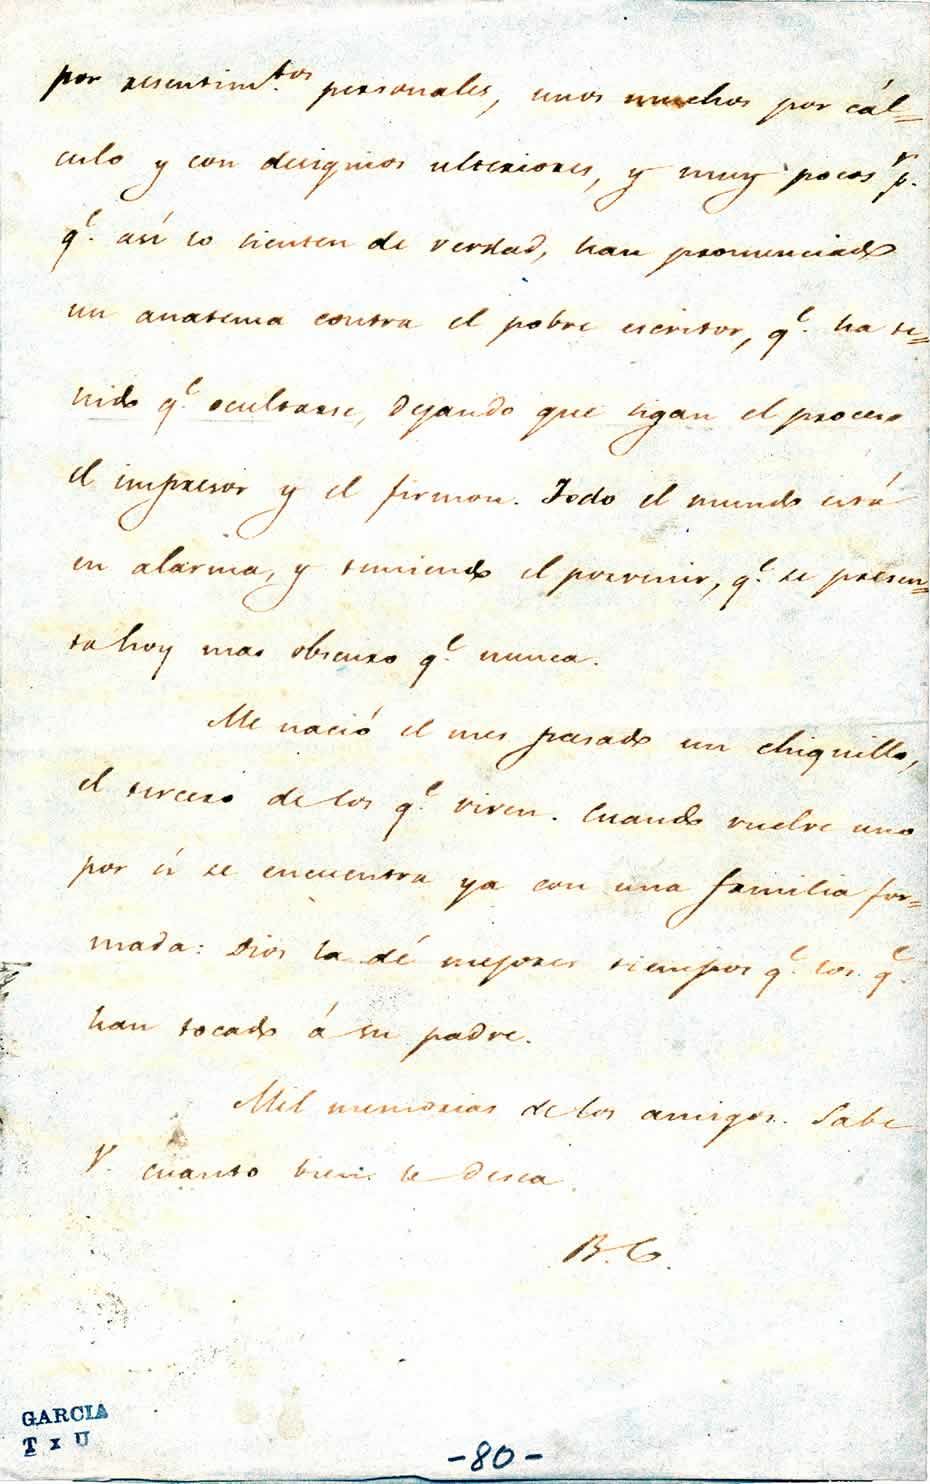 por resentim.tos personales, unos muchos por cál=
culo y con designios ulteriores, y muy pocos p.r
q.e así lo sienten de verdad, han pronunciado
un anatema contra el pobre escritor, q.e ha te=
nido q.e ocultarse, dejando que sigan el proceso
el impresor y el firmon. Todo el mundo está
en alarma, y temiendo el porvenir, q.e se presen=
ta hoy mas obscuro q.e nunca.
Me nació el mes pasado un chiquillo,
el tercero de los q.e viven. Cuando vuelve uno
por sí se encuentra ya con una familia for=
mada: Dios la dé mejores tiempos q.e los q.e
han tocado á su padre.
Mil memorias de los amigos. Sabe
V. cuanto bien le desea
B. C.
GARCIA
T x U
-80-